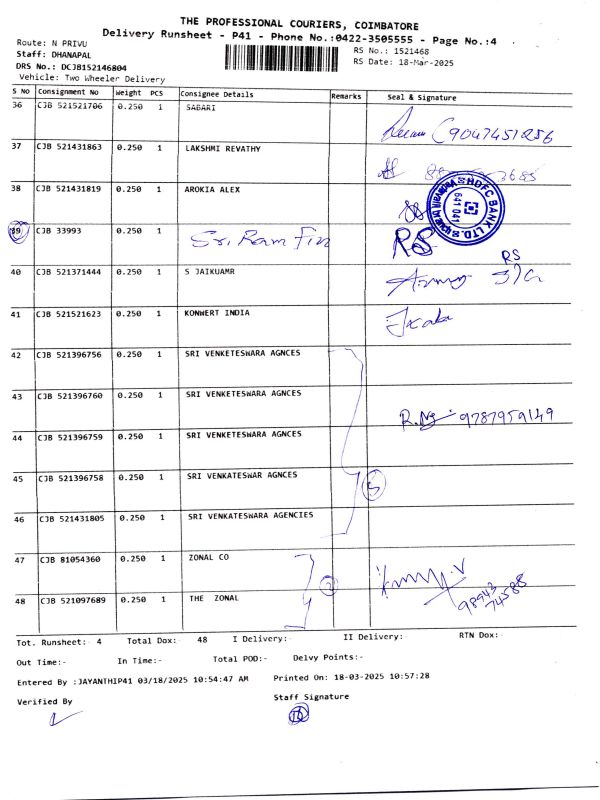 THE PROFESSIONAL COURIERS, COIMBATORE
Delivery Runsheet - P41 - Phone No.:0422-3505555 - Page No.:4
Route: N PRIVU
Staff: DHANAPAL
RS No.: 1521468
DRS No.: DCJB152146804
RS Date: 18-Mar-2025
Vehicle: Two Wheeler Delivery
S No Consignment No Weight PCS Consignee Details Remarks Seal & Signature
36 CJB 521521706 0.250 1 SABARI
9047451256
37 CJB 521431863 0.250 1 LAKSHMI REVATHY
38 CJB 521431819 0.250 1 AROKIA ALEX
HDFC BANK LTD.
641 041
39 CJB 33993 0.250 1 Sri Ram Fin RS
RS
40 CJB 521371444 0.250 1 S JAIKUAMR
41 CJB 521521623 0.250 1 KONWERT INDIA
42 CJB 521396756 0.250 1 SRI VENKETESWARA AGNCES
43 CJB 521396760 0.250 1 SRI VENKETESWARA AGNCES
9787959149
44 CJB 521396759 0.250 1 SRI VENKETESWARA AGNCES
45 CJB 521396758 0.250 1 SRI VENKATESWAR AGNCES
5
46 CJB 521431805 0.250 1 SRI VENKATESWARA AGENCIES
47 CJB 81054360 0.250 1 ZONAL CO
2
98943
74588
48 CJB 521097689 0.250 1 THE ZONAL
Tot. Runsheet:- 4 Total Dox:- 48 I Delivery:- II Delivery:- RTN Dox:-
Out Time:- In Time:- Total POD:- Delvy Points:-
Entered By :JAYANTHIP41 03/18/2025 10:54:47 AM Printed On: 18-03-2025 10:57:28
Verified By Staff Signature